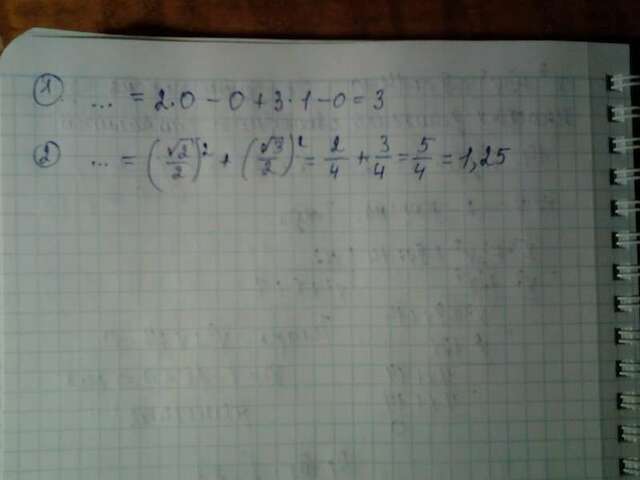 ① ... = 2·0 - 0 + 3·1 - 0 = 3
② ... = (√2/2)² + (√3/2)² = 2/4 + 3/4 = 5/4 = 1,25